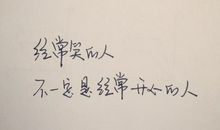 经常笑的人
不一定是经常开心的人